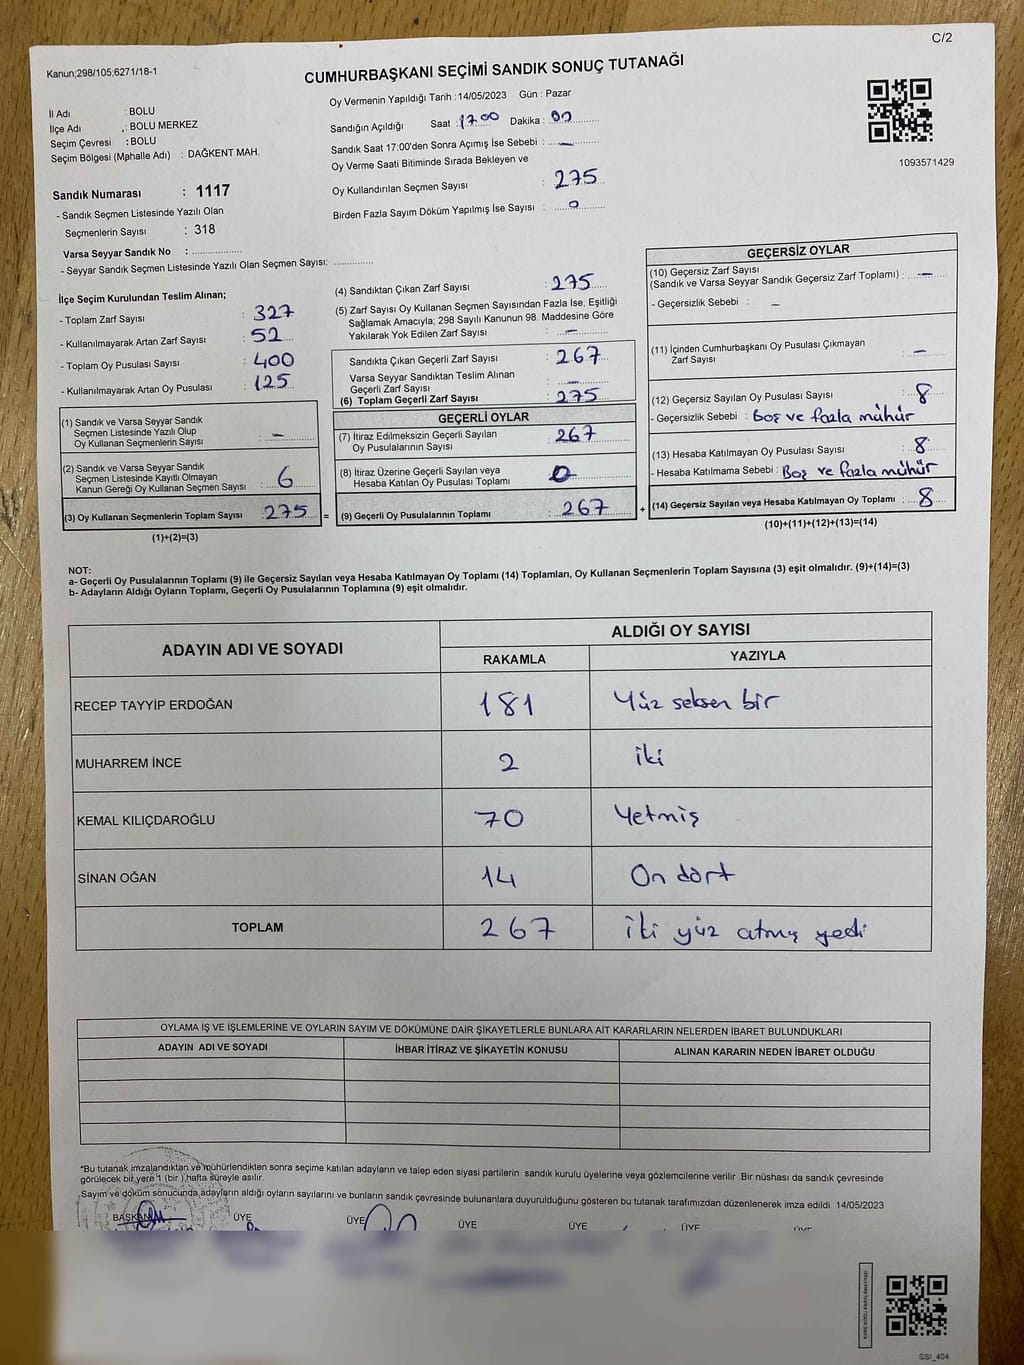 C/2
Kanun;298/105;6271/18-1
CUMHURBAŞKANI SEÇİMİ SANDIK SONUÇ TUTANAĞI
İl Adı : BOLU
İlçe Adı : BOLU MERKEZ
Seçim Çevresi : BOLU
Seçim Bölgesi (Mahalle Adı) : DAĞKENT MAH.
Oy Vermenin Yapıldığı Tarih : 14/05/2023 Gün : Pazar
Sandığın Açıldığı Saat : 17.00 Dakika : 00
Sandık Saat 17:00'den Sonra Açımış İse Sebebi : —
Oy Verme Saati Bitiminde Sırada Bekleyen ve
Oy Kullandırılan Seçmen Sayısı : 275
Birden Fazla Sayım Döküm Yapılmış İse Sayısı : 0
1093571429
Sandık Numarası : 1117
- Sandık Seçmen Listesinde Yazılı Olan
Seçmenlerin Sayısı : 318
Varsa Seyyar Sandık No : ..................
- Seyyar Sandık Seçmen Listesinde Yazılı Olan Seçmen Sayısı: ..............
İlçe Seçim Kurulundan Teslim Alınan;
- Toplam Zarf Sayısı : 327
- Kullanılmayarak Artan Zarf Sayısı : 52
- Toplam Oy Pusulası Sayısı : 400
- Kullanılmayarak Artan Oy Pusulası : 125
(1) Sandık ve Varsa Seyyar Sandık
Seçmen Listesinde Yazılı Olup
Oy Kullanan Seçmenlerin Sayısı : —
(2) Sandık ve Varsa Seyyar Sandık
Seçmen Listesinde Kayıtlı Olmayan
Kanun Gereği Oy Kullanan Seçmen Sayısı : 6
(3) Oy Kullanan Seçmenlerin Toplam Sayısı : 275 =
(1)+(2)=(3)
(4) Sandıktan Çıkan Zarf Sayısı : 275
(5) Zarf Sayısı Oy Kullanan Seçmen Sayısından Fazla İse, Eşitliği
Sağlamak Amacıyla; 298 Sayılı Kanunun 98. Maddesine Göre
Yakılarak Yok Edilen Zarf Sayısı : —
Sandıkta Çıkan Geçerli Zarf Sayısı : 267
Varsa Seyyar Sandıktan Teslim Alınan
Geçerli Zarf Sayısı : —
(6) Toplam Geçerli Zarf Sayısı : 275
GEÇERLİ OYLAR
(7) İtiraz Edilmeksizin Geçerli Sayılan
Oy Pusulalarının Sayısı : 267
(8) İtiraz Üzerine Geçerli Sayılan veya
Hesaba Katılan Oy Pusulası Toplamı : 0
(9) Geçerli Oy Pusulalarının Toplamı : 267 +
GEÇERSİZ OYLAR
(10) Geçersiz Zarf Sayısı
(Sandık ve Varsa Seyyar Sandık Geçersiz Zarf Toplamı) : —
- Geçersizlik Sebebi : —
(11) İçinden Cumhurbaşkanı Oy Pusulası Çıkmayan
Zarf Sayısı : —
(12) Geçersiz Sayılan Oy Pusulası Sayısı : 8
- Geçersizlik Sebebi : boş ve fazla mühür
(13) Hesaba Katılmayan Oy Pusulası Sayısı : 8
- Hesaba Katılmama Sebebi : Boş ve fazla mühür
(14) Geçersiz Sayılan veya Hesaba Katılmayan Oy Toplamı : 8
(10)+(11)+(12)+(13)=(14)
NOT:
a- Geçerli Oy Pusulalarının Toplamı (9) ile Geçersiz Sayılan veya Hesaba Katılmayan Oy Toplamı (14) Toplamları, Oy Kullanan Seçmenlerin Toplam Sayısına (3) eşit olmalıdır. (9)+(14)=(3)
b- Adayların Aldığı Oyların Toplamı, Geçerli Oy Pusulalarının Toplamına (9) eşit olmalıdır.
ADAYIN ADI VE SOYADI
ALDIĞI OY SAYISI
RAKAMLA YAZIYLA
RECEP TAYYİP ERDOĞAN 181 Yüz seksen bir
MUHARREM İNCE 2 iki
KEMAL KILIÇDAROĞLU 70 Yetmiş
SİNAN OĞAN 14 On dört
TOPLAM 267 iki yüz atmış yedi
OYLAMA İŞ VE İŞLEMLERİNE VE OYLARIN SAYIM VE DÖKÜMÜNE DAİR ŞİKAYETLERLE BUNLARA AİT KARARLARIN NELERDEN İBARET BULUNDUKLARI
ADAYIN ADI VE SOYADI İHBAR İTİRAZ VE ŞİKAYETİN KONUSU ALINAN KARARIN NEDEN İBARET OLDUĞU
*Bu tutanak imzalandıktan ve mühürlendikten sonra seçime katılan adayların ve talep eden siyasi partilerin sandık kurulu üyelerine veya gözlemcilerine verilir. Bir nüshası da sandık çevresinde
görülecek bir yere 1 (bir ) hafta süreyle asılır.
Sayım ve döküm sonucunda adayların aldığı oyların sayılarını ve bunların sandık çevresinde bulunanlara duyurulduğunu gösteren bu tutanak tarafımızdan düzenlenerek imza edildi. 14/05/2023
BAŞKAN ÜYE ÜYE ÜYE ÜYE ÜYE ÜYE
SSI_404